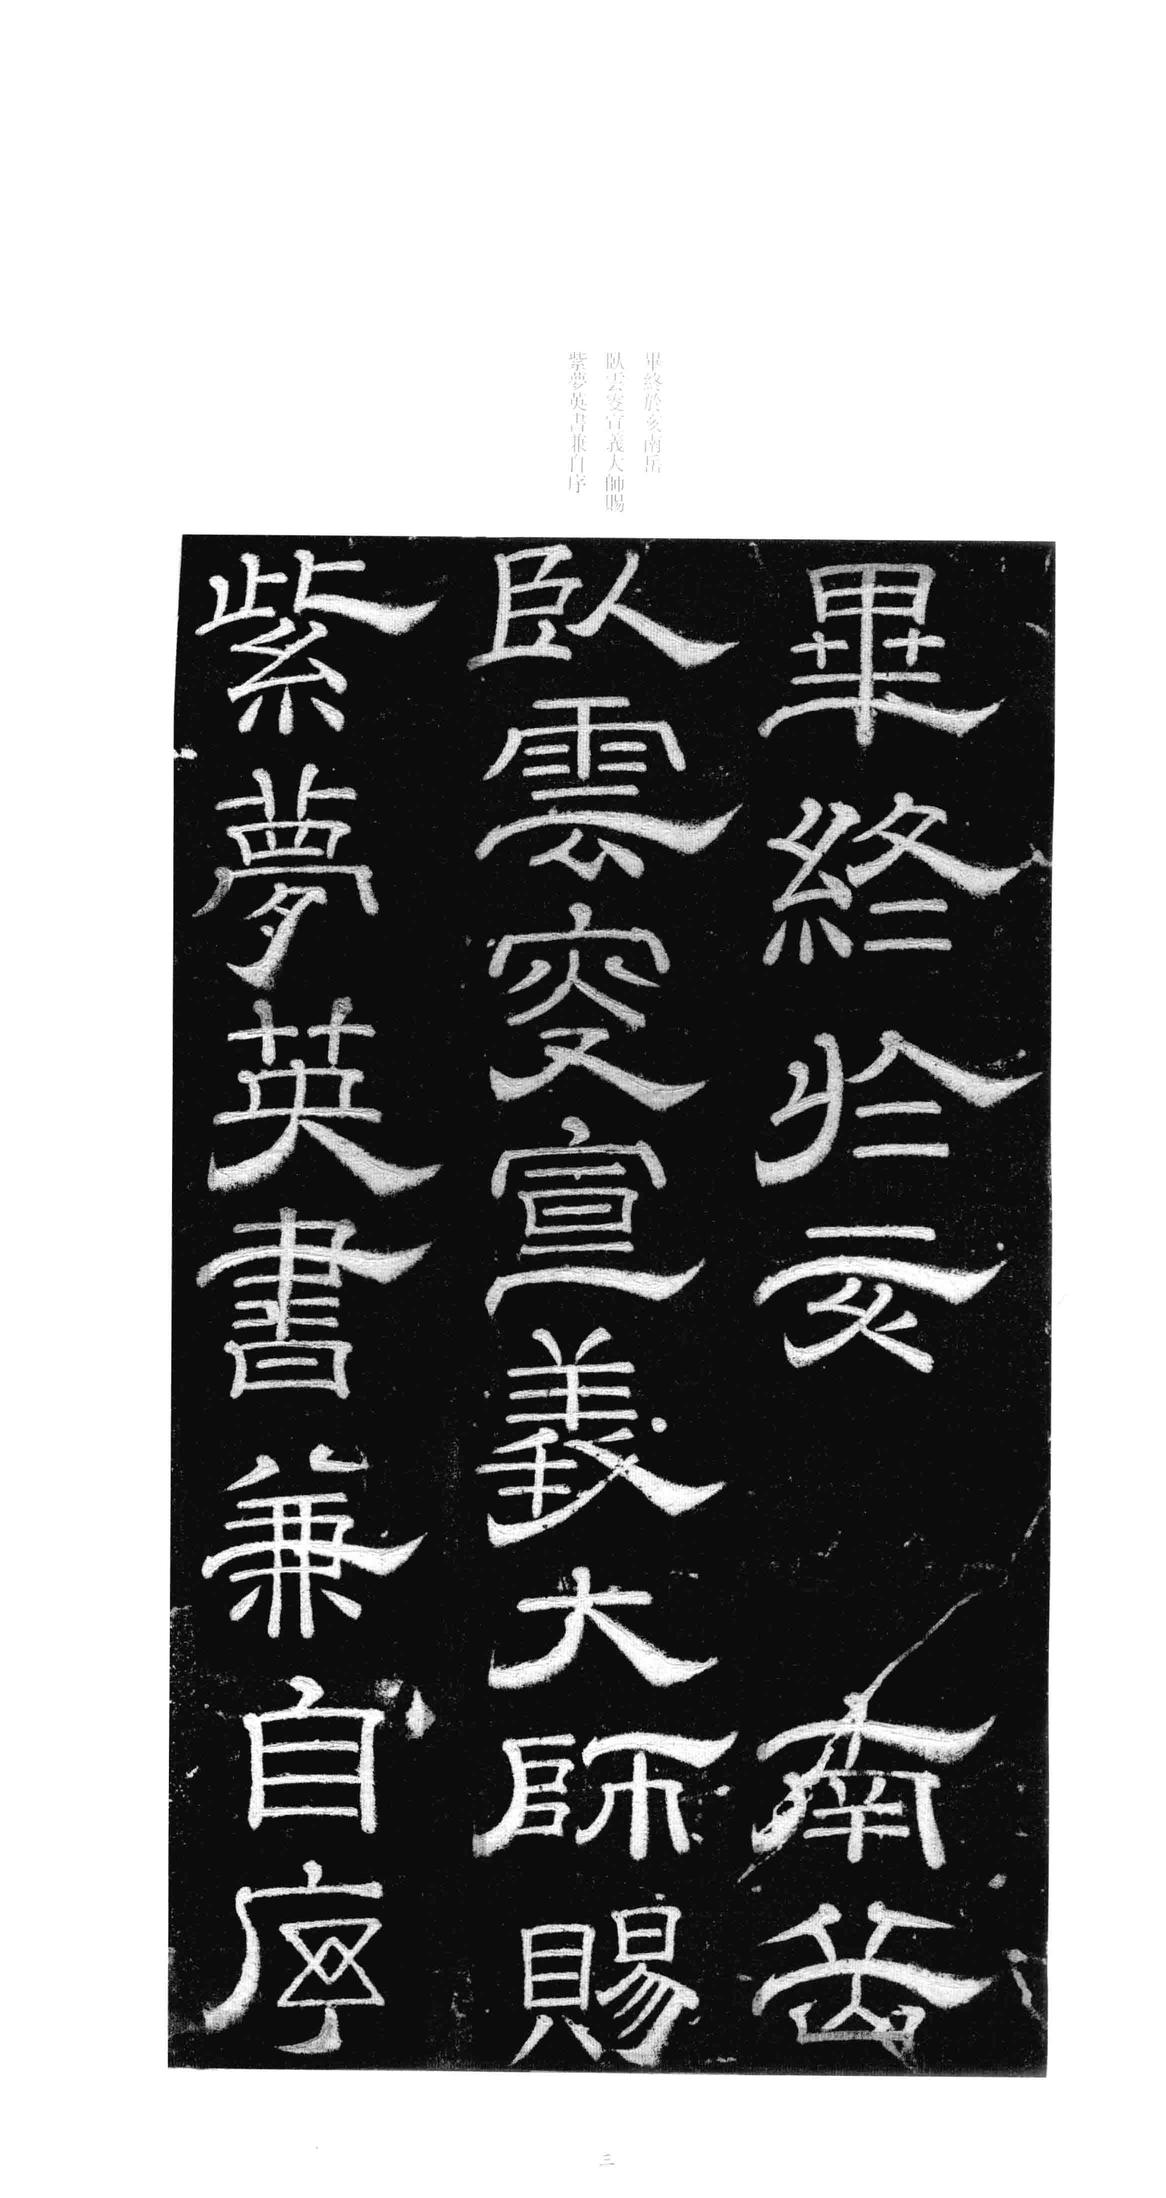 畢終於亥南岳
臥雲叟宣義大師賜
紫夢英書兼自序
畢終於亥南岳
臥雲叟宣義大師賜
紫夢英書兼自序
三